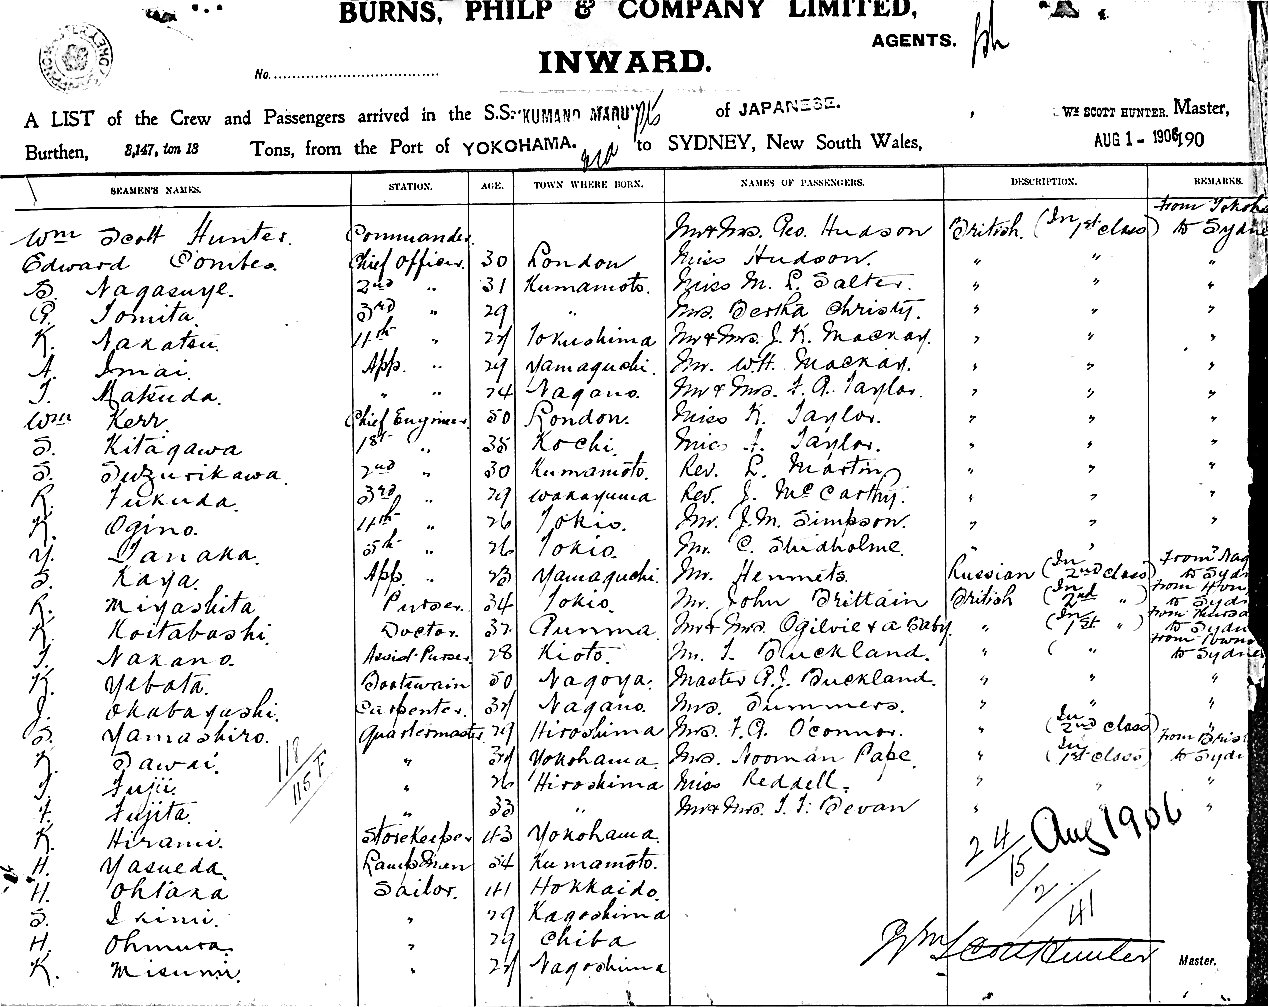 BURNS, PHILP & COMPANY LIMITED,
AGENTS.
INWARD.
No.
A LIST of the Crew and Passengers arrived in the S.S. "KUMANO MARU" of JAPANESE. Wm SCOTT HUNTER. Master,
Burthen, 8,147, ton 18 Tons, from the Port of YOKOHAMA. to SYDNEY, New South Wales, AUG 1 - 1906 190
SEAMEN'S NAMES. STATION. AGE. TOWN WHERE BORN. NAMES OF PASSENGERS. DESCRIPTION. REMARKS.
Wm Scott Hunter. Commander. Mr & Mrs. Geo. Hudson British. (In 1st class) from Yokoha to Sydne
Edward Combes. Chief Officer. 30 London Miss Hudson. " " "
S. Nagasuye. 2nd " 31 Kumamoto. Miss M. L. Salter. " " "
Tomita. 3rd " 29 " Mrs. Bertha Christy. " " "
K. Nakatsu. 4th " 27 Tokushima Mr & Mrs. J. K. Mackay. " " "
A. Imai. App. " 29 Yamaguchi. Mr. W.H. Mackay. " " "
T. Matsuda. " " 24 Nagano. Mr & Mrs. F. A. Taylor. " " "
Wm Kerr. Chief Engineer. 50 London. Miss K. Taylor. " " "
S. Kitagawa 1st " 35 Kochi. Miss I. Taylor. " " "
S. Suzurikawa. 2nd " 30 Kumamoto. Rev. L. Martin " " "
R. Fukuda. 3rd " 29 Wakayama Rev. J. McCarthy. " " "
K. Ogino. 4th " 26 Tokio. Mr. J.M. Simpson. " " "
Y. Tanaka. 5th " 26 Tokio. Mr. C. Studholme. " "
S. Kaya. App. " 23 Yamaguchi. Mr. Hemmets. Russian (In 2nd class) from Nag to Syd
K. Miyashita Purser. 34 Tokio. Mr. John Brittain British (In 2nd ") from Hon to Syd
K. Koitabashi. Doctor. 32 Gunma. Mr & Mrs. Ogilvie & a Baby. " (In 1st ") from Thursd to Sydn
T. Nakano. Assist. Purser. 28 Kioto. Mr. T. Buckland. " ( " from Towns to Sydne
K. Yabata. Boatswain 50 Nagoya. Master A.J. Buckland. " " "
J. Okabayashi. Carpenter. 37 Nagano. Mrs. Summers. " "
S. Yamashiro. Quartermaster. 29 Hiroshima Mrs. F.A. O'Connor. " (In 2nd class) "
K. Sawai. " 37 Yokohama. Mrs. Norman Pape. " (In 1st class) from Brisb to Sydn
Fujii. " 26 Hiroshima Miss Reddell. " " "
Fujita. " 33 " Mr & Mrs. T. T. Bevan " "
K. Hirami. Storekeeper 43 Yokohama.
H. Yasueda. Lamp Men 34 Kumamoto.
H. Ohtaka Sailor. 41 Hokkaido.
S. Ikimi. " 29 Kagoshima
H. Ohmura. " 29 Chiba
K. Misumi. " 27 Nagoshima
118
115 F
24 Aug 1906
15
2
41
Wm Scott Hunter Master.